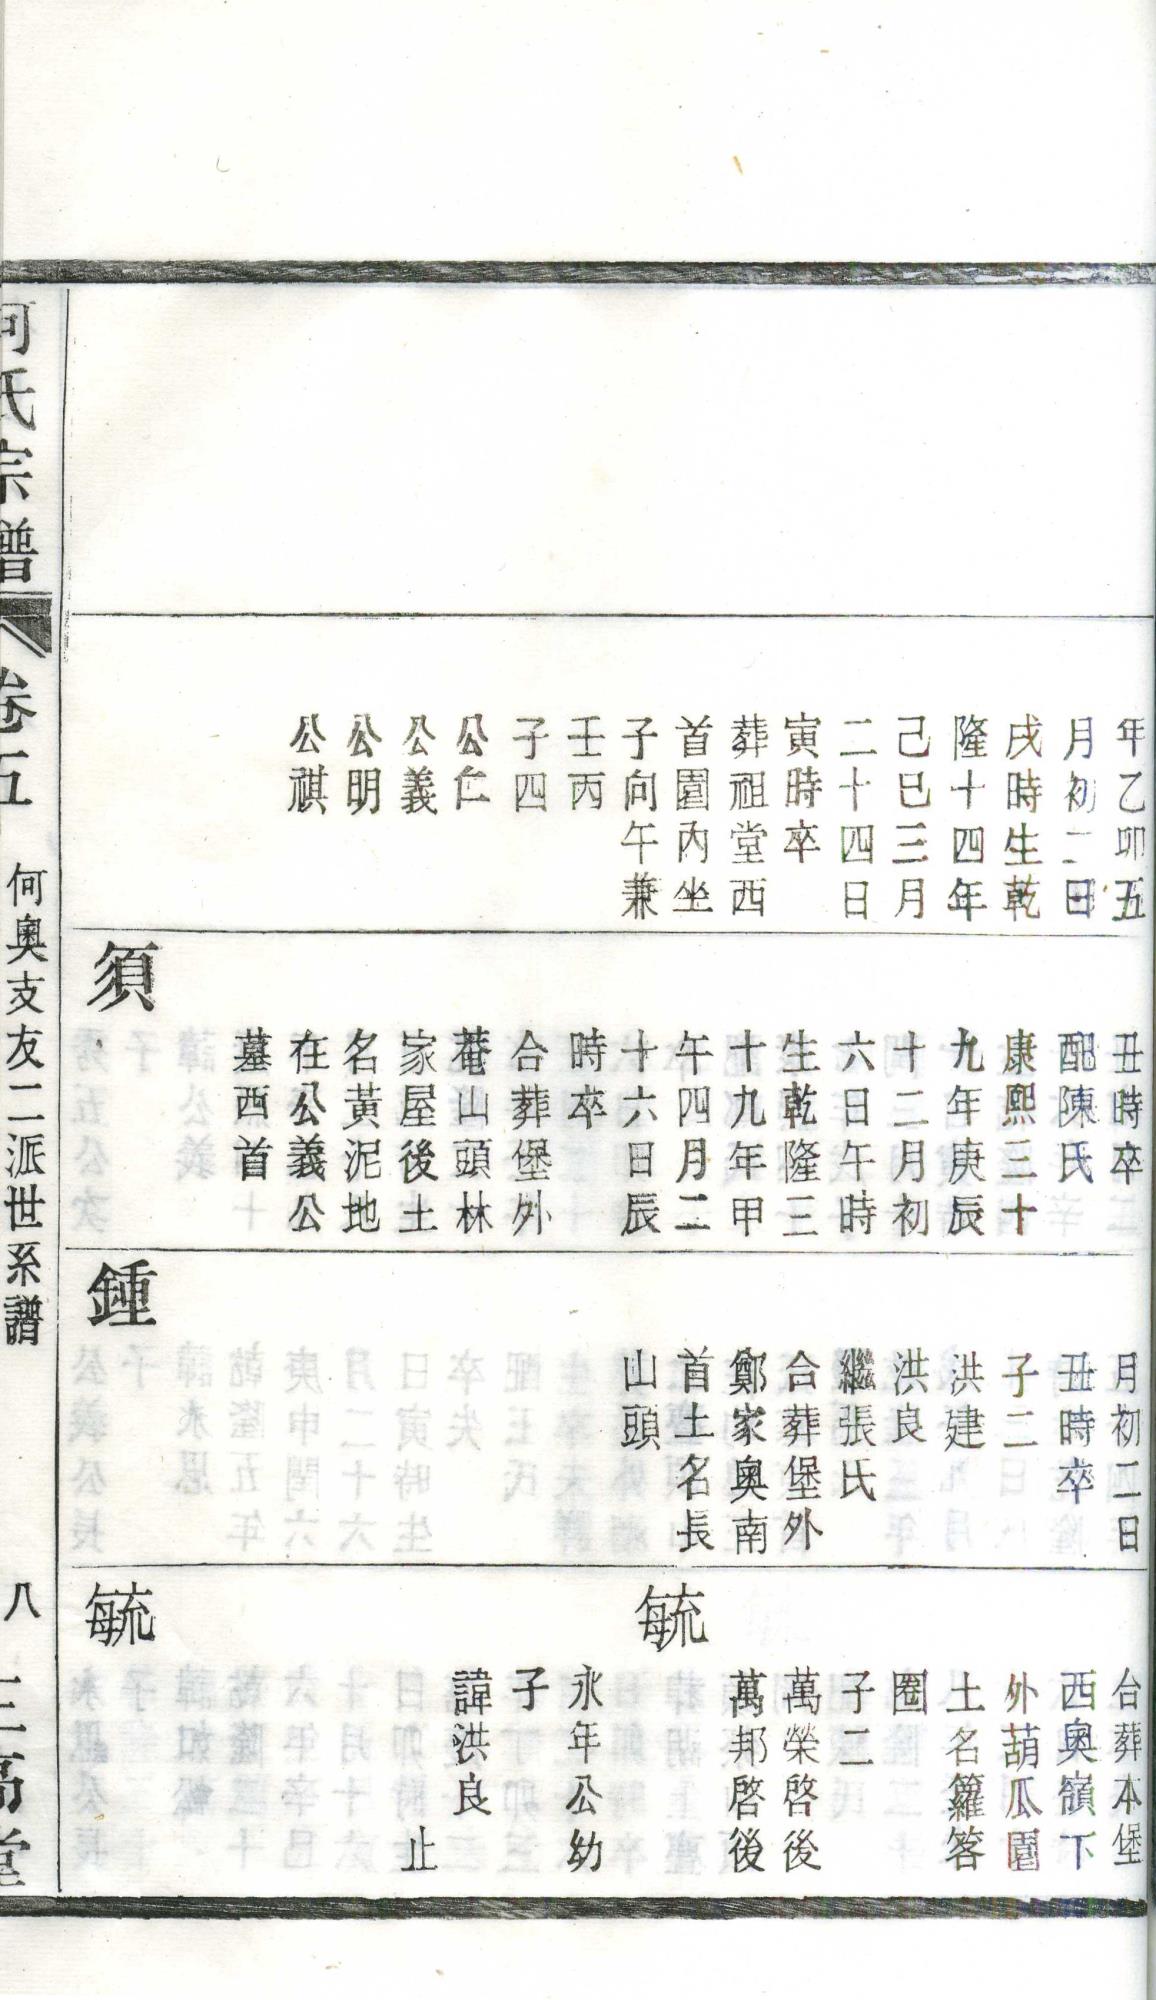 年乙卯五
月初二日
戌時生乾
隆十四年
己巳三月
二十四日
寅時卒
葬祖堂西
首園內坐
子向午兼
壬丙
子四
公仁
公義
公明
公祺
丑時卒
配陳氏
康熙三十
九年庚辰
十二月初
六日午時
生乾隆三
十九年甲
午四月二
十六日辰
時卒
合葬堡外
菴山頭林
家屋後土
名黃泥地
在公義公
墓西首
須
月初二日
丑時卒
子二
洪建
洪良
繼張氏
合葬堡外
鄭家奧南
首土名長
山頭
鍾
合葬本堡
西奧嶺下
外葫瓜園
土名籮箁
圈
子二
萬榮啓後
萬邦啓後
毓
永年公幼
子
諱洪良
止
毓
何氏宗譜
卷五
何奧支友二派世系譜
八
三高堂